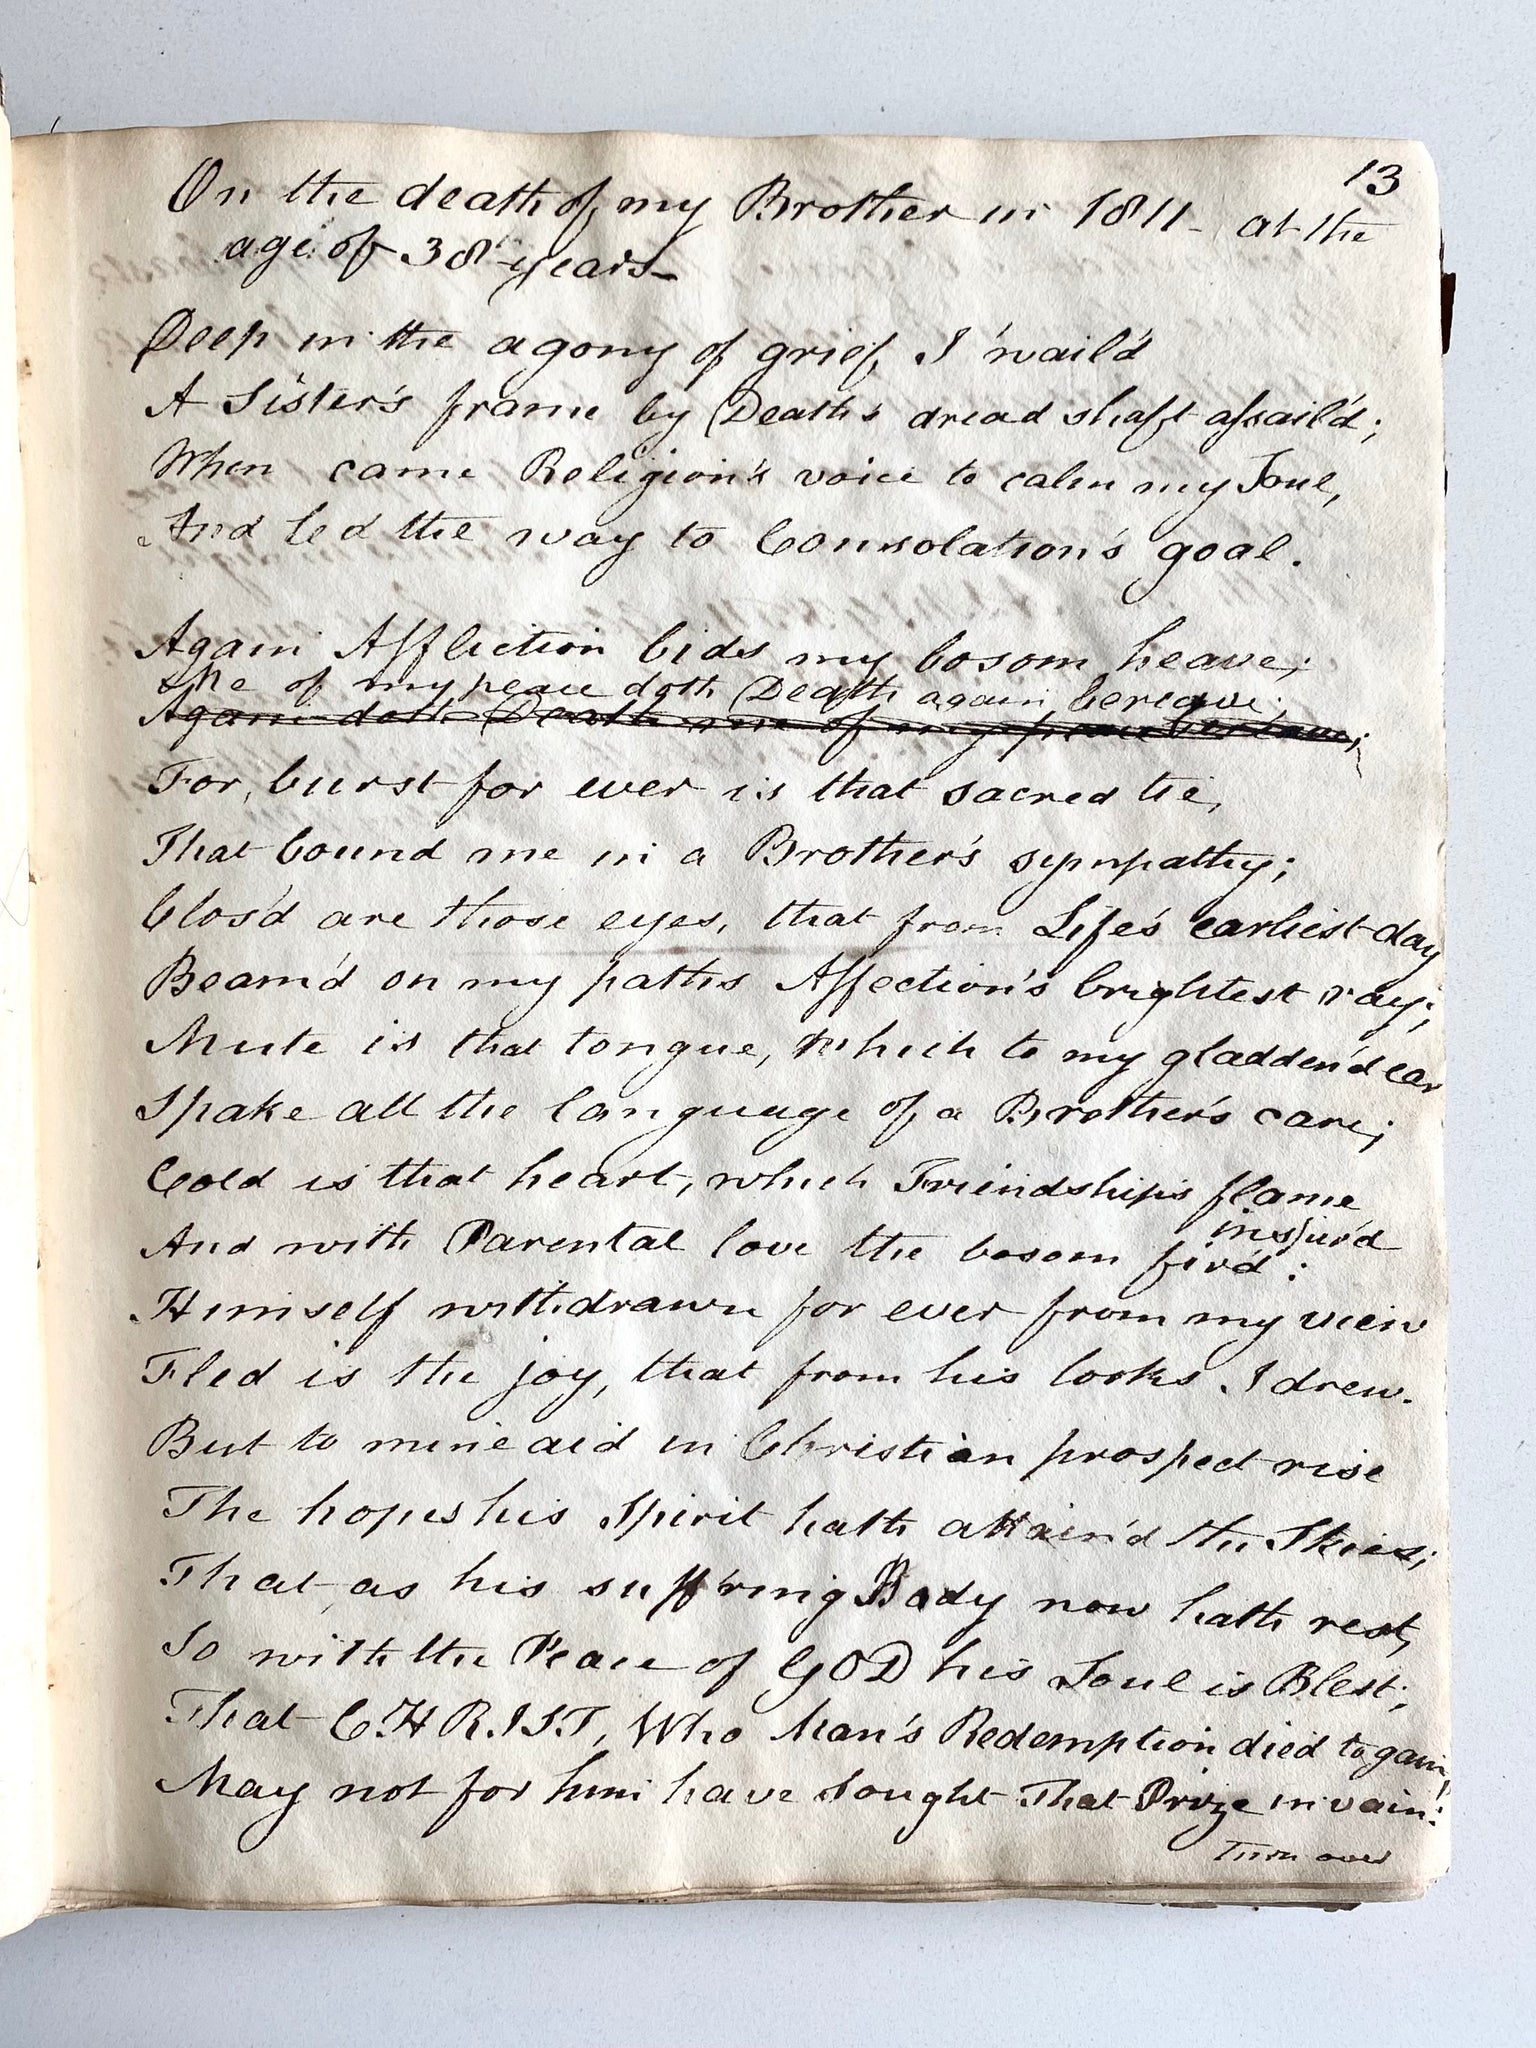 13
On the death of my Brother in 1811 - at the
age of 38 years -
Deep in the agony of grief, I wail'd
A Sister's frame by Death's dread shaft assail'd;
When came Religion's voice to calm my Soul,
And led the way to Consolation's goal.
Again Affliction bids my bosom heave;
Me of my peace doth Death again bereave;
Again doth Death me of my peace bereave;
For, burst for ever is that sacred tie,
That bound me in a Brother's sympathy;
Clos'd are those eyes, that from Life's earliest day
Beam'd on my paths Affection's brightest ray;
Mute is that tongue, which to my gladden'd ear
Spake all the language of a Brother's care;
Cold is that heart, which Friendship's flame
inspir'd
And with Parental love the bosom fir'd:
Himself withdrawn for ever from my view
Fled is the joy, that from his looks I drew.
But to mine aid in Christian prospect rise
The hopes his Spirit hath attain'd the Skies;
That as his suff'ring Body now hath rest,
So with the Peace of GOD his Soul is Blest;
That CHRIST, Who Man's Redemption died to gain,
May not for him have sought That Prize in vain:
Turn over